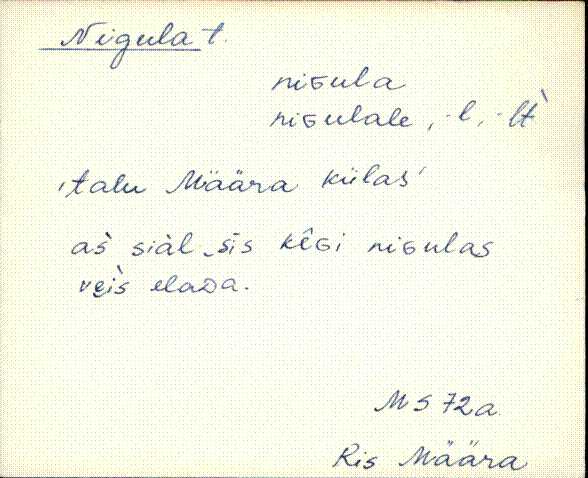 Nigula t.
niɢula
niɢulale, -l, -lt̀
'talu Määra külas'
as̀ siàl sīs kêɢi niɢulas
vei̯s elaᴅa.
MS 72a
Ris Määra